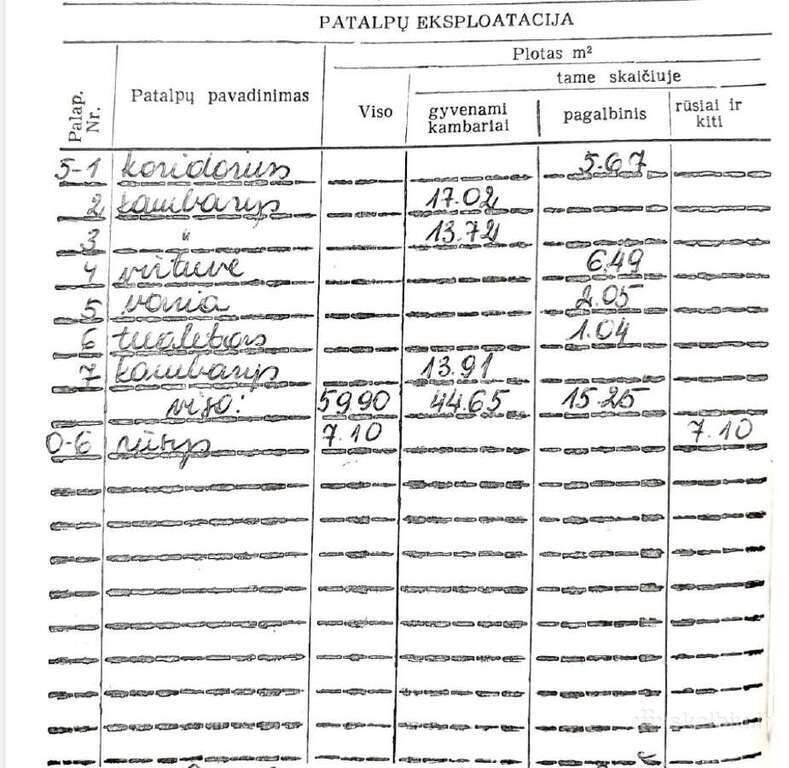 PATALPŲ EKSPLOATACIJA
Plotas m²
tame skaičiuje
Palap. Nr. Patalpų pavadinimas Viso gyvenami kambariai pagalbinis rūsiai ir kiti
5-1 koridorius 5.67
2 kambarys 17.02
3 " 13.72
4 virtuvė 6.49
5 vonia 2.05
6 tualetas 1.04
7 kambarys 13.91
viso: 59.90 44.65 15.25
0-6 rūsys 7.10 7.10